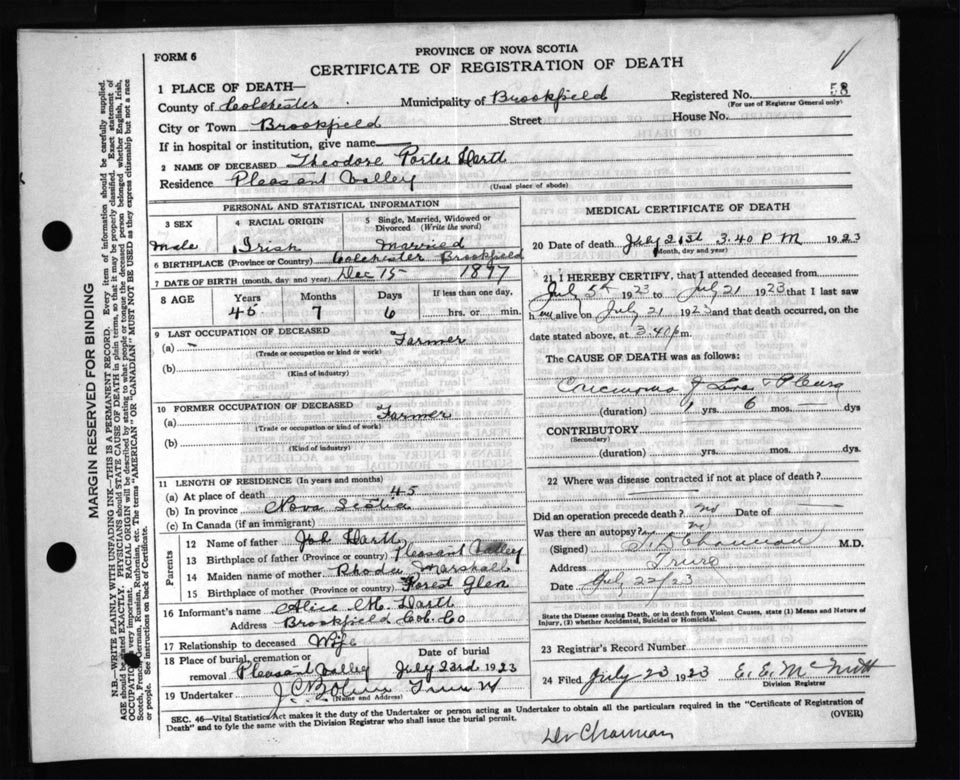 FORM 6
PROVINCE OF NOVA SCOTIA
CERTIFICATE OF REGISTRATION OF DEATH
1 PLACE OF DEATH—
County of Colchester Municipality of Brookfield Registered No. 58
(For use of Registrar General only)
City or Town Brookfield Street House No.
If in hospital or institution, give name
2 NAME OF DECEASED Theodore Porter
Residence Pleasant Valley (Usual place of abode)
PERSONAL AND STATISTICAL INFORMATION
3 SEX 4 RACIAL ORIGIN 5 Single, Married, Widowed or Divorced (Write the word)
Male Irish Married
6 BIRTHPLACE (Province or Country) Colchester Brookfield
7 DATE OF BIRTH (month, day and year) Dec 15 18
8 AGE Years Months Days If less than one day,
45 7 6 hrs. or min.
9 LAST OCCUPATION OF DECEASED
(a) Farmer
(Trade or occupation or kind or work)
(b)
(Kind of industry)
10 FORMER OCCUPATION OF DECEASED
(a) Farmer
(Trade or occupation or kind of work)
(b)
(Kind of industry)
11 LENGTH OF RESIDENCE (In years and months)
(a) At place of death 45
(b) In province Nova Scotia
(c) In Canada (if an immigrant)
Parents
12 Name of father
13 Birthplace of father (Province or country) Pleasant Valley
14 Maiden name of mother Marshall
15 Birthplace of mother (Province or country) Forest Glen
16 Informant's name Alice
Address Brookfield Col. Co
17 Relationship to deceased Wife
18 Place of burial, cremation or removal Date of burial
Pleasant Valley July 23rd 1923
19 Undertaker
(Name and Address)
MEDICAL CERTIFICATE OF DEATH
20 Date of death July 21st 3.40 PM 1923
(Month, day and year)
21 I HEREBY CERTIFY, that I attended deceased from
July 5th 1923 to July 21 1923 that I last saw
h im alive on July 21 1923 and that death occurred, on
date stated above, at 3.40 p.m.
The CAUSE OF DEATH was as follows:
(duration) 1 yrs. 6 mos. — dys
CONTRIBUTORY
(Secondary)
(duration) yrs. mos. dys
22 Where was disease contracted if not at place of death?
Did an operation precede death? no Date of —
Was there an autopsy? no
(Signed) M.D.
Address Truro
Date July 22/23
State the Disease causing Death, or in death from Violent Causes, state (1) Means and Nature of Injury, (2) whether Accidental, Suicidal or Homicidal.
23 Registrar's Record Number
24 Filed July 23 1923 E. E. McNutt
Division Registrar
SEC. 46—Vital Statistics Act makes it the duty of the Undertaker or person acting as Undertaker to obtain all the particulars required in the "Certificate of Registration of
Death" and to fyle the same with the Division Registrar who shall issue the burial permit.
(OVER)
MARGIN RESERVED FOR BINDING
N.B.—WRITE PLAINLY WITH UNFADING INK—THIS IS A PERMANENT RECORD. Every item of information should be carefully supplied.
AGE should be stated EXACTLY. PHYSICIANS should STATE CAUSE OF DEATH in plain terms, so that it may be properly classified. Exact statement of
OCCUPATION is very important. RACIAL ORIGIN will be described by stating to what people or tongue the deceased person belonged whether English, Irish,
Scotch, French, German, Russian, Ruthenian, etc. The terms "AMERICAN" OR "CANADIAN" MUST NOT BE USED as they express citizenship but not a race
or people. See instructions on back of Certificate.